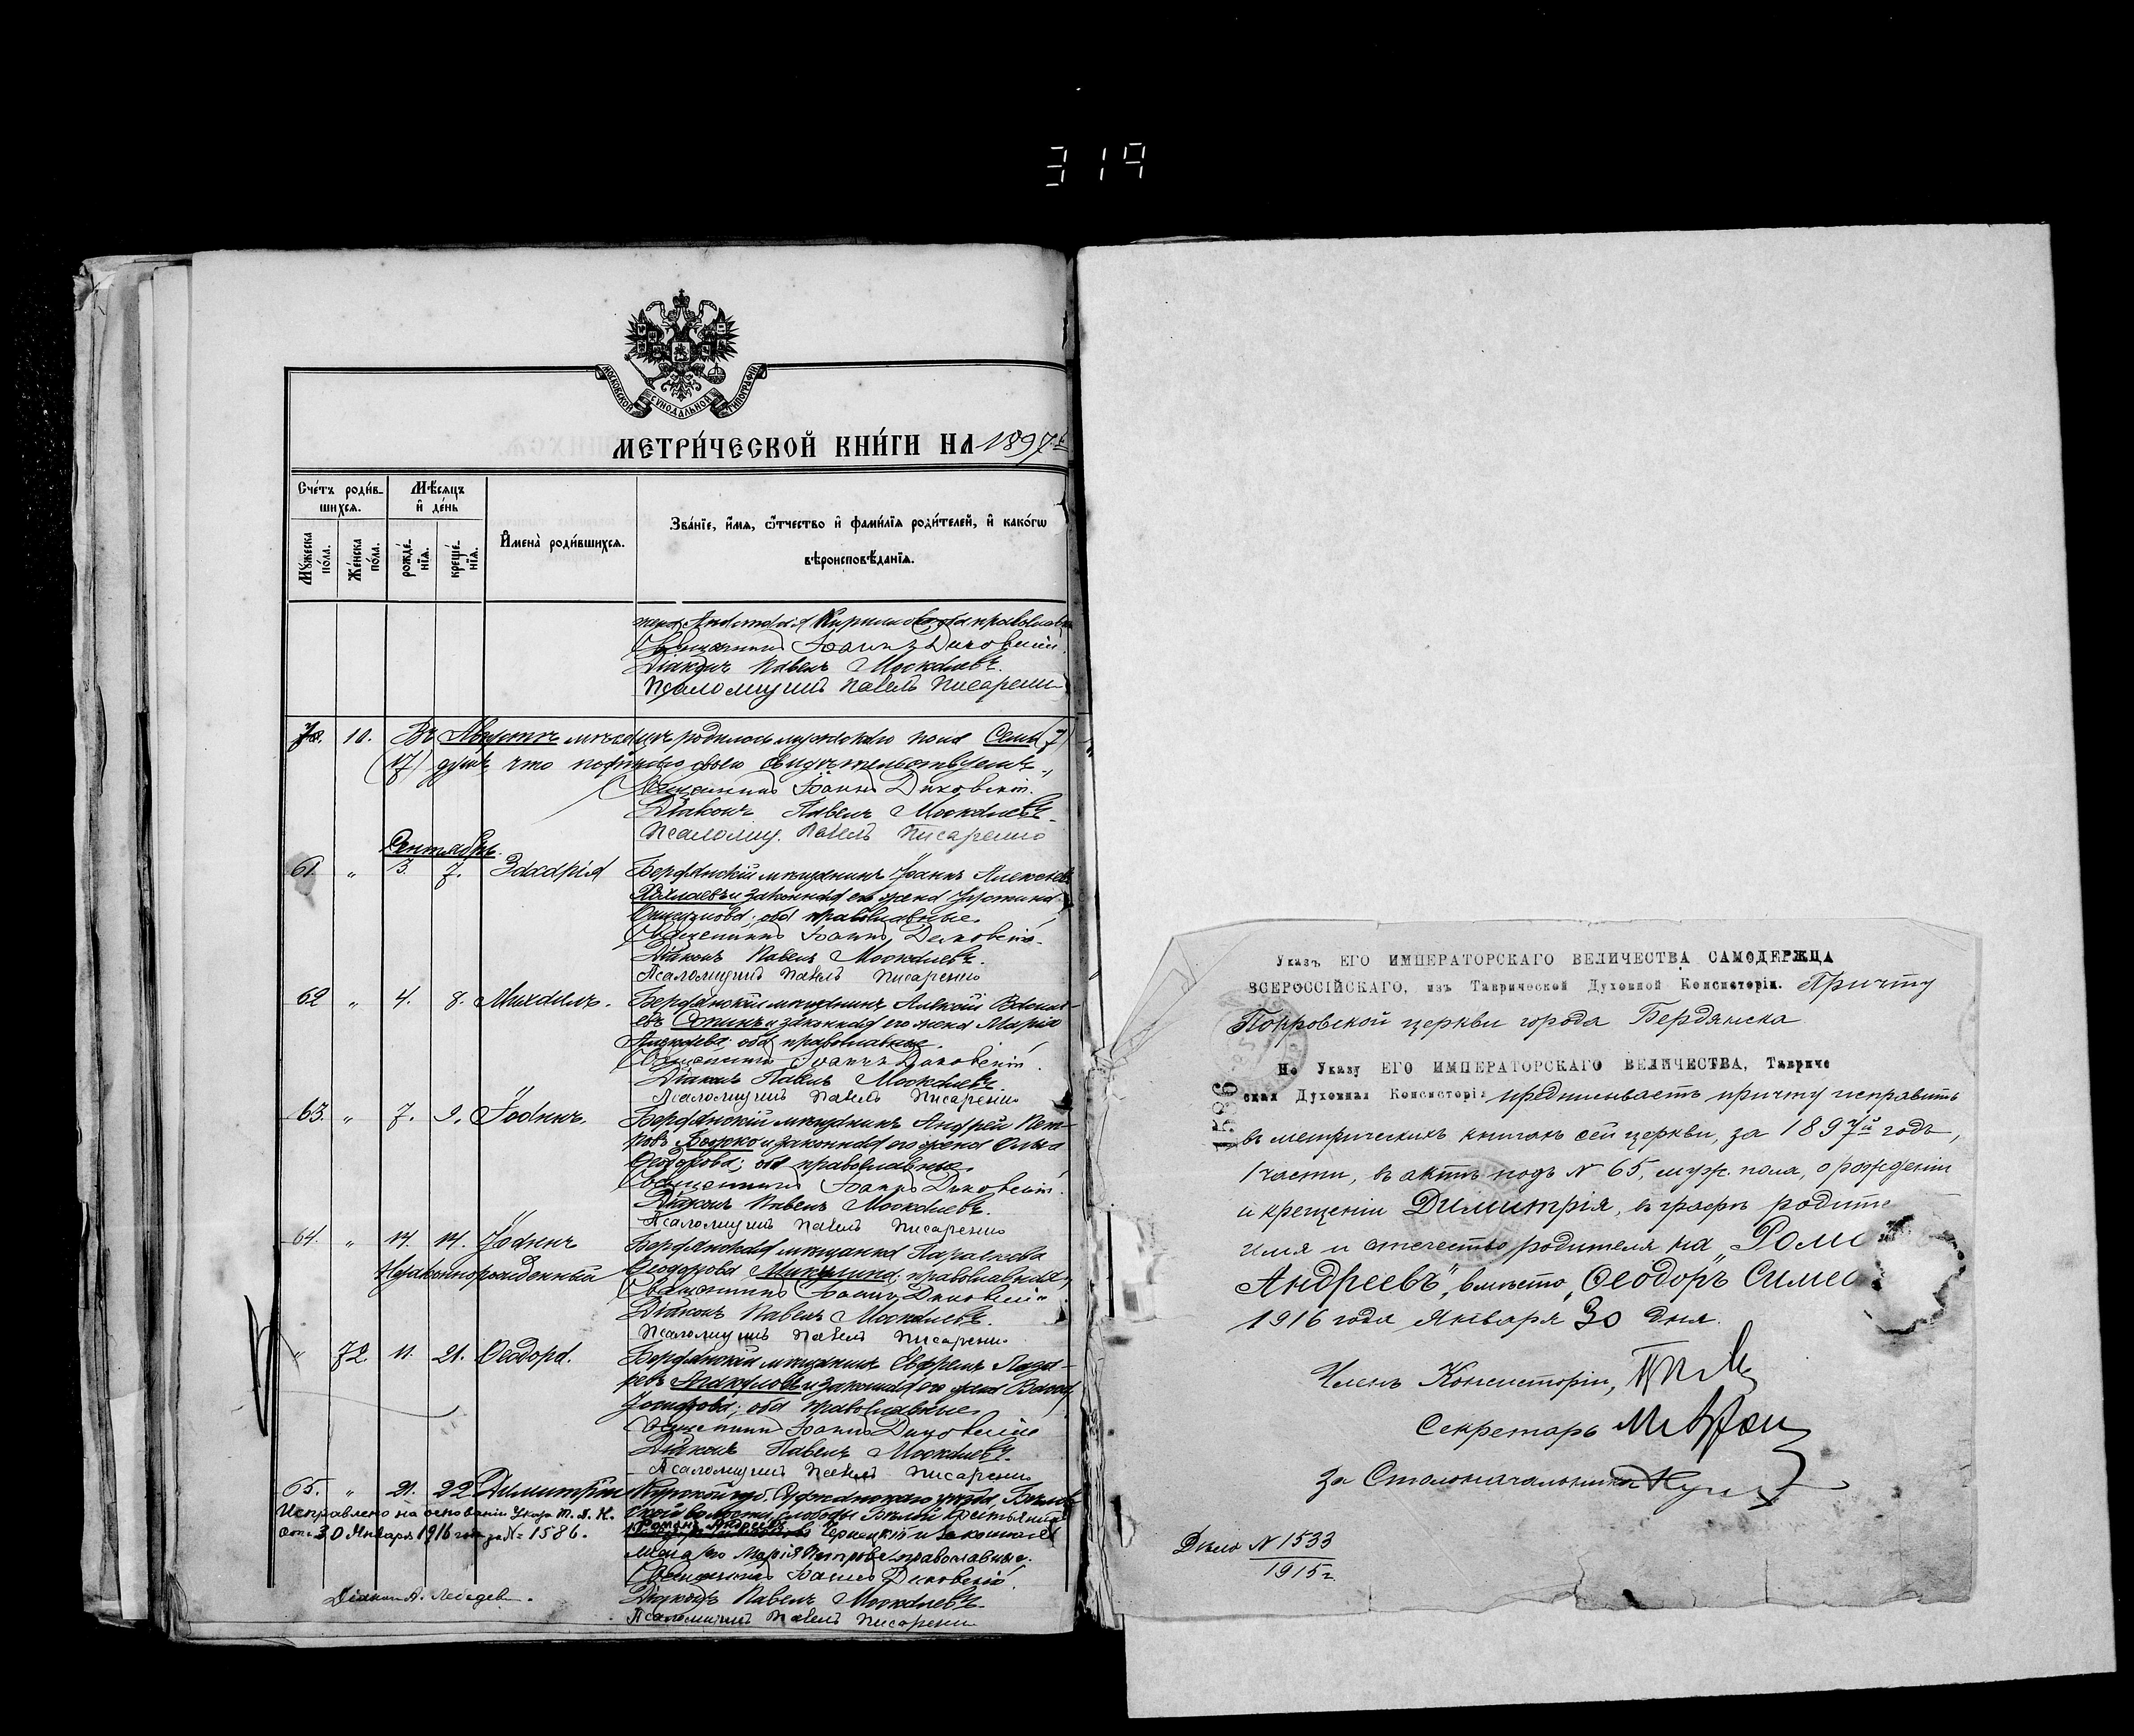 319
МОСКОВСКОЙ СУНОДАЛЬНОЙ ТИПОГРАФІИ
МЕТРИ́ЧЕСКОЙ КНИ́ГИ НА 1897 г.
Сче́тъ роди́в-
шихся.
Мѣ́сяцъ
и҆ де́нь
Му́жеска
по́ла.
Же́нска
по́ла.
рожде́-
нїя.
креще́-
нїя.
И҆мена̀ роди́вшихся.
Зва́нїе, и҆́мя, ѻ҆́тчество и҆ фами́лїя роди́телей, и҆ како́гѡ
вѣроисповѣ́данїя.
Кириллова, оба православные
Священникъ Іоаннъ Диковскій.
Діаконъ Павелъ Москалевъ.
Псаломщикъ Павелъ Писаренко
10. Въ Августѣ мѣсяцѣ родилось мужескаго пола Семь (7)
душъ, что подписью своею свидѣтельствуемъ
Священникъ Іоаннъ Диковскій.
Діаконъ Павелъ Москалевъ.
Псаломщ. Павелъ Писаренко
Сентябрь.
61. " 3. 7. Захарія Бердянскій мѣщанинъ Іоаннъ Алексѣевъ
и законная его жена Іустина
оба православные.
Священникъ Іоаннъ Диковскій.
Діаконъ Павелъ Москалевъ.
Псаломщикъ Павелъ Писаренко
62 " 4. 8. Михаилъ. Бердянскій мѣщанинъ Алексій Василь-
евъ и законная его жена Марія
оба православные.
Священникъ Іоаннъ Диковскій.
Діаконъ Павелъ Москалевъ.
Псаломщикъ Павелъ Писаренко
63. " 7. 9. Іоаннъ. Бердянскій мѣщанинъ Андрей Пет-
ровъ и законная его жена Ольга
Ѳеодорова; оба православные.
Священникъ Іоаннъ Диковскій.
Діаконъ Павелъ Москалевъ.
Псаломщикъ Павелъ Писаренко
64. " 14. 14. Іоаннъ Бердянская мѣщанка Параскева
Незаконнорожденный Ѳеодорова Микулина; православная,
Священникъ Іоаннъ Диковскій
Діаконъ Павелъ Москалевъ.
Псаломщикъ Павелъ Писаренко
" 72 11. 21. Ѳеодора. Бердянскій мѣщанинъ Ефремъ Лаза-
ревъ и законная его жена
оба православные
Священникъ Іоаннъ Диковскій
Діаконъ Павелъ Москалевъ.
Псаломщикъ Павелъ Писаренко
65. " 21. 22. Димитрій Курской губ. Суджанскаго уѣзда,
Исправлено на основаніи Указа Т. Д. К. волости, слободы Бѣлой крестьянинъ
отъ 30 Января 1916 года за № 1586. Романъ Андреевъ Чернецкій и законная
жена его Марія Петрова, православные.
Священникъ Іоаннъ Диковскій.
Діаконъ А. Лебедев. Діаконъ Павелъ Москалевъ.
Псаломщикъ Павелъ Писаренко
Указъ ЕГО ИМПЕРАТОРСКАГО ВЕЛИЧЕСТВА САМОДЕРЖЦА
ВСЕРОССІЙСКАГО, изъ Таврической Духовной Консисторіи. Причту
Покровской церкви города Бердянска
По Указу ЕГО ИМПЕРАТОРСКАГО ВЕЛИЧЕСТВА, Тавриче
ская Духовная Консисторія предписываетъ причту исправить
1586
въ метрическихъ книгахъ сей церкви, за 1897й годъ,
1 части, въ актѣ подъ № 65, муж. пола, о рожденіи
и крещеніи Димитрія, въ графѣ родите
имя и отчество родителя на "Рома
Андреевъ", вмѣсто "Ѳеодоръ Симео
1916 года Января 30 дня.
Членъ Консисторіи,
Секретарь
За Столоначальника
Дѣло № 1533
1915 г.